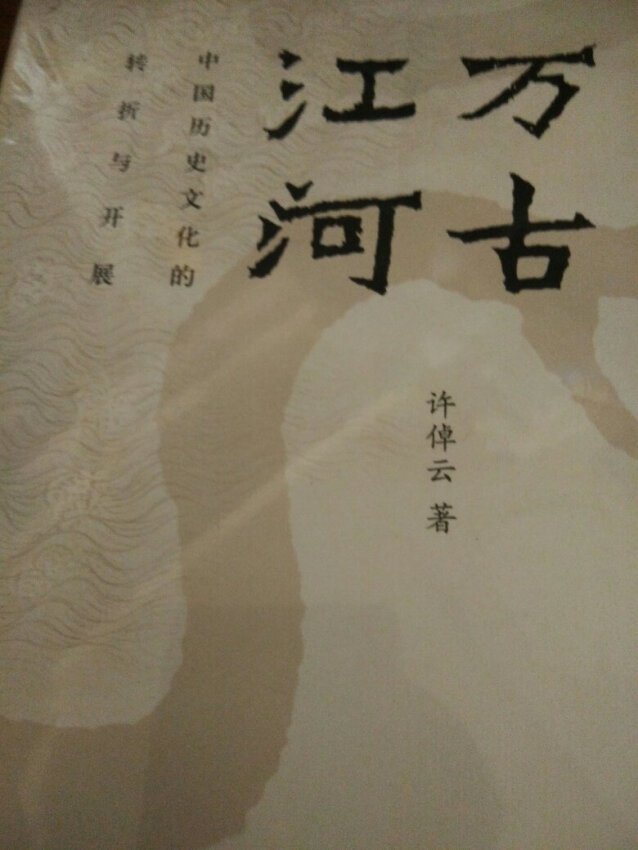 万古
江河
中国历史文化的
转折与开展
许倬云 著